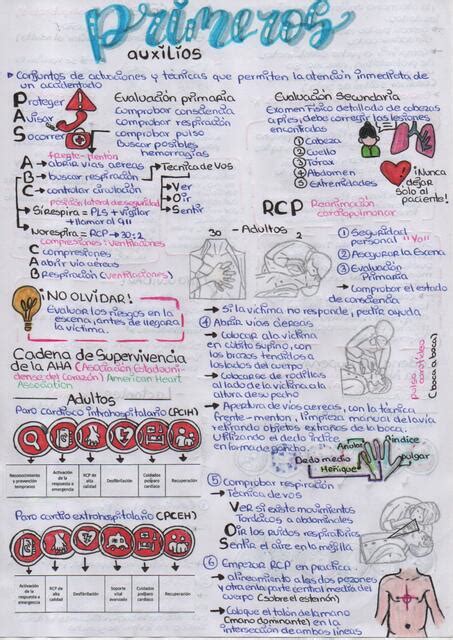 primeros
auxilios
Conjuntos de actuaciones y técnicas que permiten la atención inmediata de
un accidentado
Proteger
Avisar
Socorrer
Evaluación primaria
comprobar consciencia
comprobar respiración
comprobar pulso
Buscar posibles
hemorragias
frente-menton
A → abrir vias aereas
B → buscar respiración
C → controlar circulación
Técnica de Vos
Ver
Oir
Sentir
posición lateral de seguridad
Si respira = PLS + vigilar
+ llamar al 911
No respira = RCP → 30:2
compresiones: ventilaciones
Compresiones
Abrir via aérea
Respiración (ventilaciones)
Evaluación Secundaria
Examen Fisico detallado de cabeza
a pies, debe corregir las lesiones
encontradas
① Cabeza
② Cuello
③ Tórax
④ Abdomen
⑤ Extremidades
¡Nunca
dejar
solo al
paciente!
RCP Reanimación
cardiopulmonar
30 - Adultos 2
① Seguridad
personal "Yo"
② Asegurar la Escena
③ Evaluación
Primaria
→ Comprobar el estado
de consciencia
→ Si la victima no responde, pedir ayuda
¡NO OLVIDAR!
Evaluar los riesgos en la
escena, antes de llegar a
la víctima.
Cadena de Supervivencia
de la AHA (Asociación Estadouni-
dense del Corazón) American Heart
Association
Adultos
Paro cardiaco intrahospitalario (PCIH)
Reconocimiento y prevención tempranos
Activación de la respuesta a emergencia
RCP de alta calidad
Desfibrilación
Cuidados posparo cardíaco
Recuperación
Paro cardio extrahospitalario (PCEH)
Activación de la respuesta a emergencia
RCP de alta calidad
Desfibrilación
Soporte vital avanzado
Cuidados posparo cardíaco
Recuperación
④ Abrir vias aereas
→ Colocar a la victima
en cúbito supino, con
los brazos tendidos a
los lados del cuerpo
→ Colocarse de rodillas
al lado de la víctima a la
altura de su pecho
→ Apertura de vias aereas, con la técnica
frente-menton, limpieza manual de la vía
retirando objetos extraños de la boca.
Utilizando el dedo índice
en forma de gancho.
pulso carotídeo
(boca a boca)
Anular
índice
Dedo medio
pulgar
Meñique
⑤ Comprobar respiración
→ Técnica de vos
Ver si existe movimientos
Torácicos a abdominales
Oir los ruidos respiratorios
Sentir el aire en la mejilla.
⑥ Empezar RCP en practica.
→ alineamiento a los dos pezones
y otra en la parte central media del
cuerpo (sobre el esternón)
→ Coloque el talón de la mano
(mano dominante) en la
intersección de ambos lineas